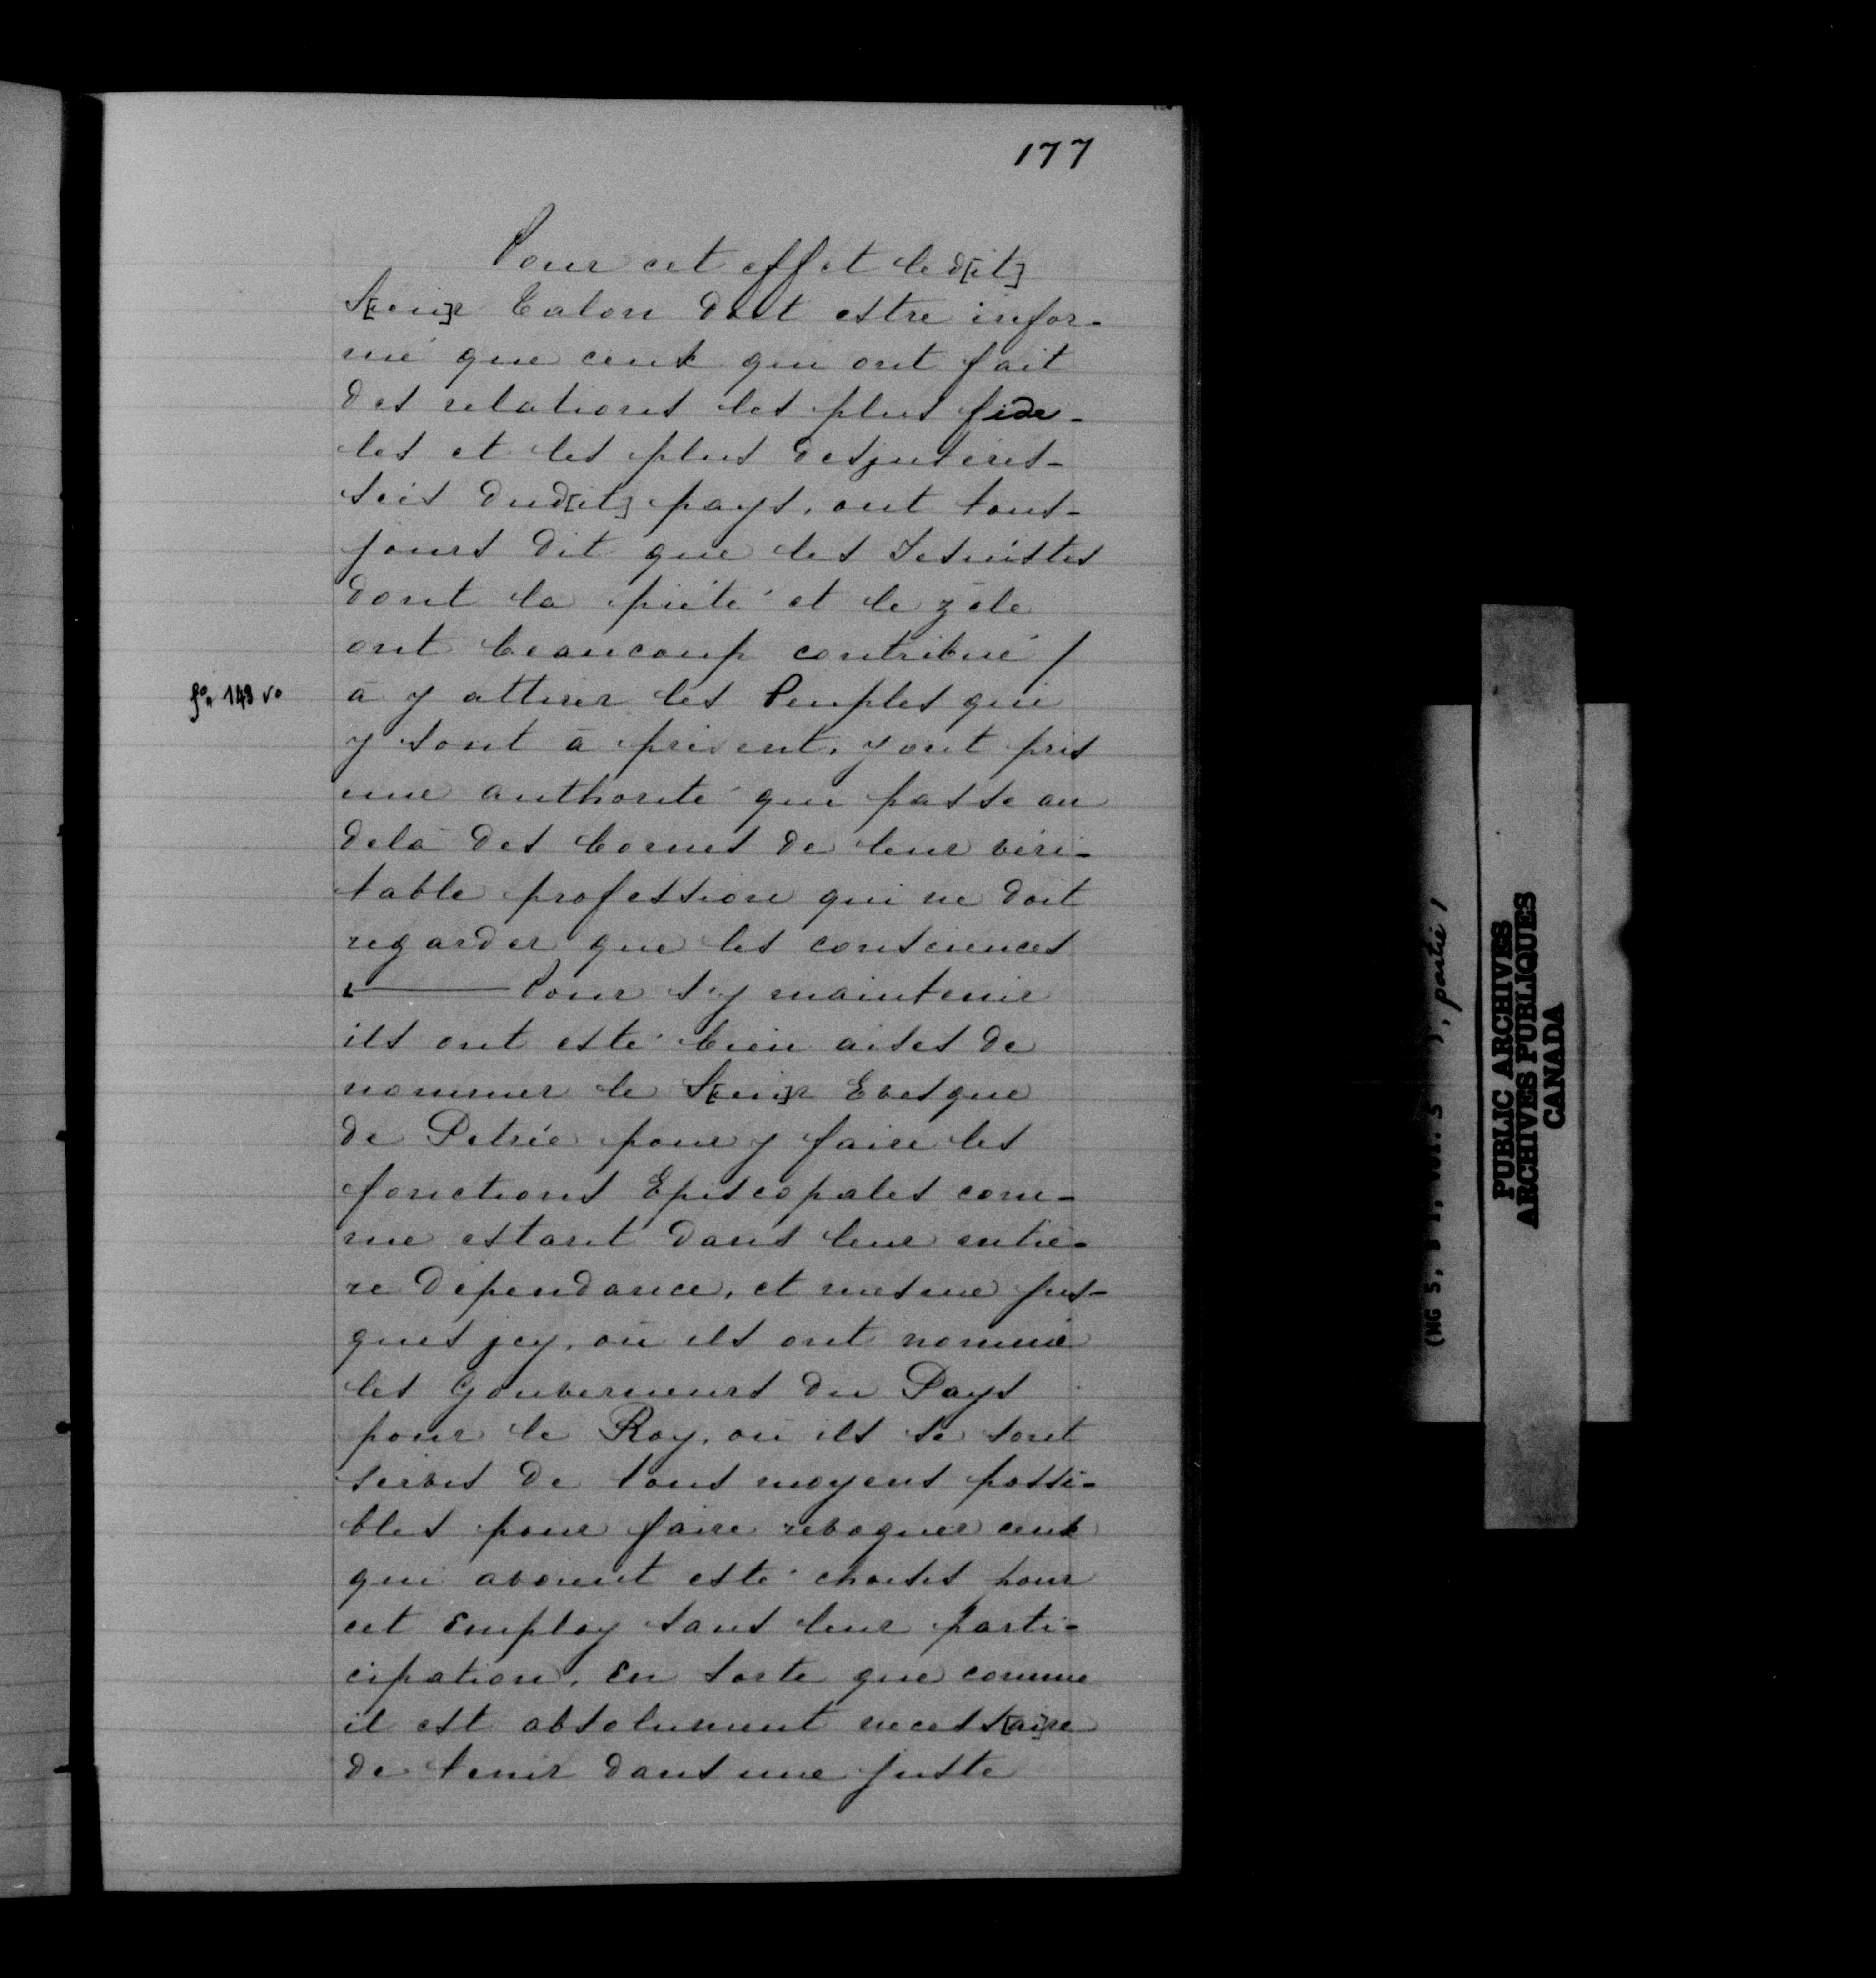 177
Pour cet effet led[it]
S[ieu]r Talon doit estre infor-
mé que ceux qui ont fait
des relations les plus fide-
les et les plus desjnteres-
seés dud[it] pays, ont tous-
jours dit que les Jesuistes
dont la piété et le zèle
ont beaucoup contribué /
fo. 149 vo
à y attirer les Peuples qui
y sont à présent, y ont pris
une authorité qui passe au
delà des bornes de leur véri-
table profession qui ne doit
regarder que les consciences
Pour s'y maintenir
ils ont esté bien aises de
nommer le S[ieu]r Evesque
de Petrée pour y faire les
fonctions Episcopales com-
me estant dans leur entiè-
re dépendance, et mesme jus-
ques jcy, où ils ont nommé
les Gouverneurs du Pays
pour le Roy, où ils se sont
servis de tous moyens possi-
bles pour faire revoquer ceux
qui avoient esté choisis pour
cet Employ sans leur parti-
cipation, En sorte que comme
il est absolument necess[ai]re
de tenir dans une juste
PUBLIC ARCHIVES
ARCHIVES PUBLIQUES
CANADA
(MG 5, B 1, vol. 5 ), partie 1